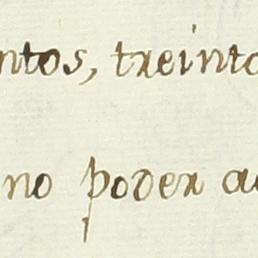 ntos, treinto
no poder ac